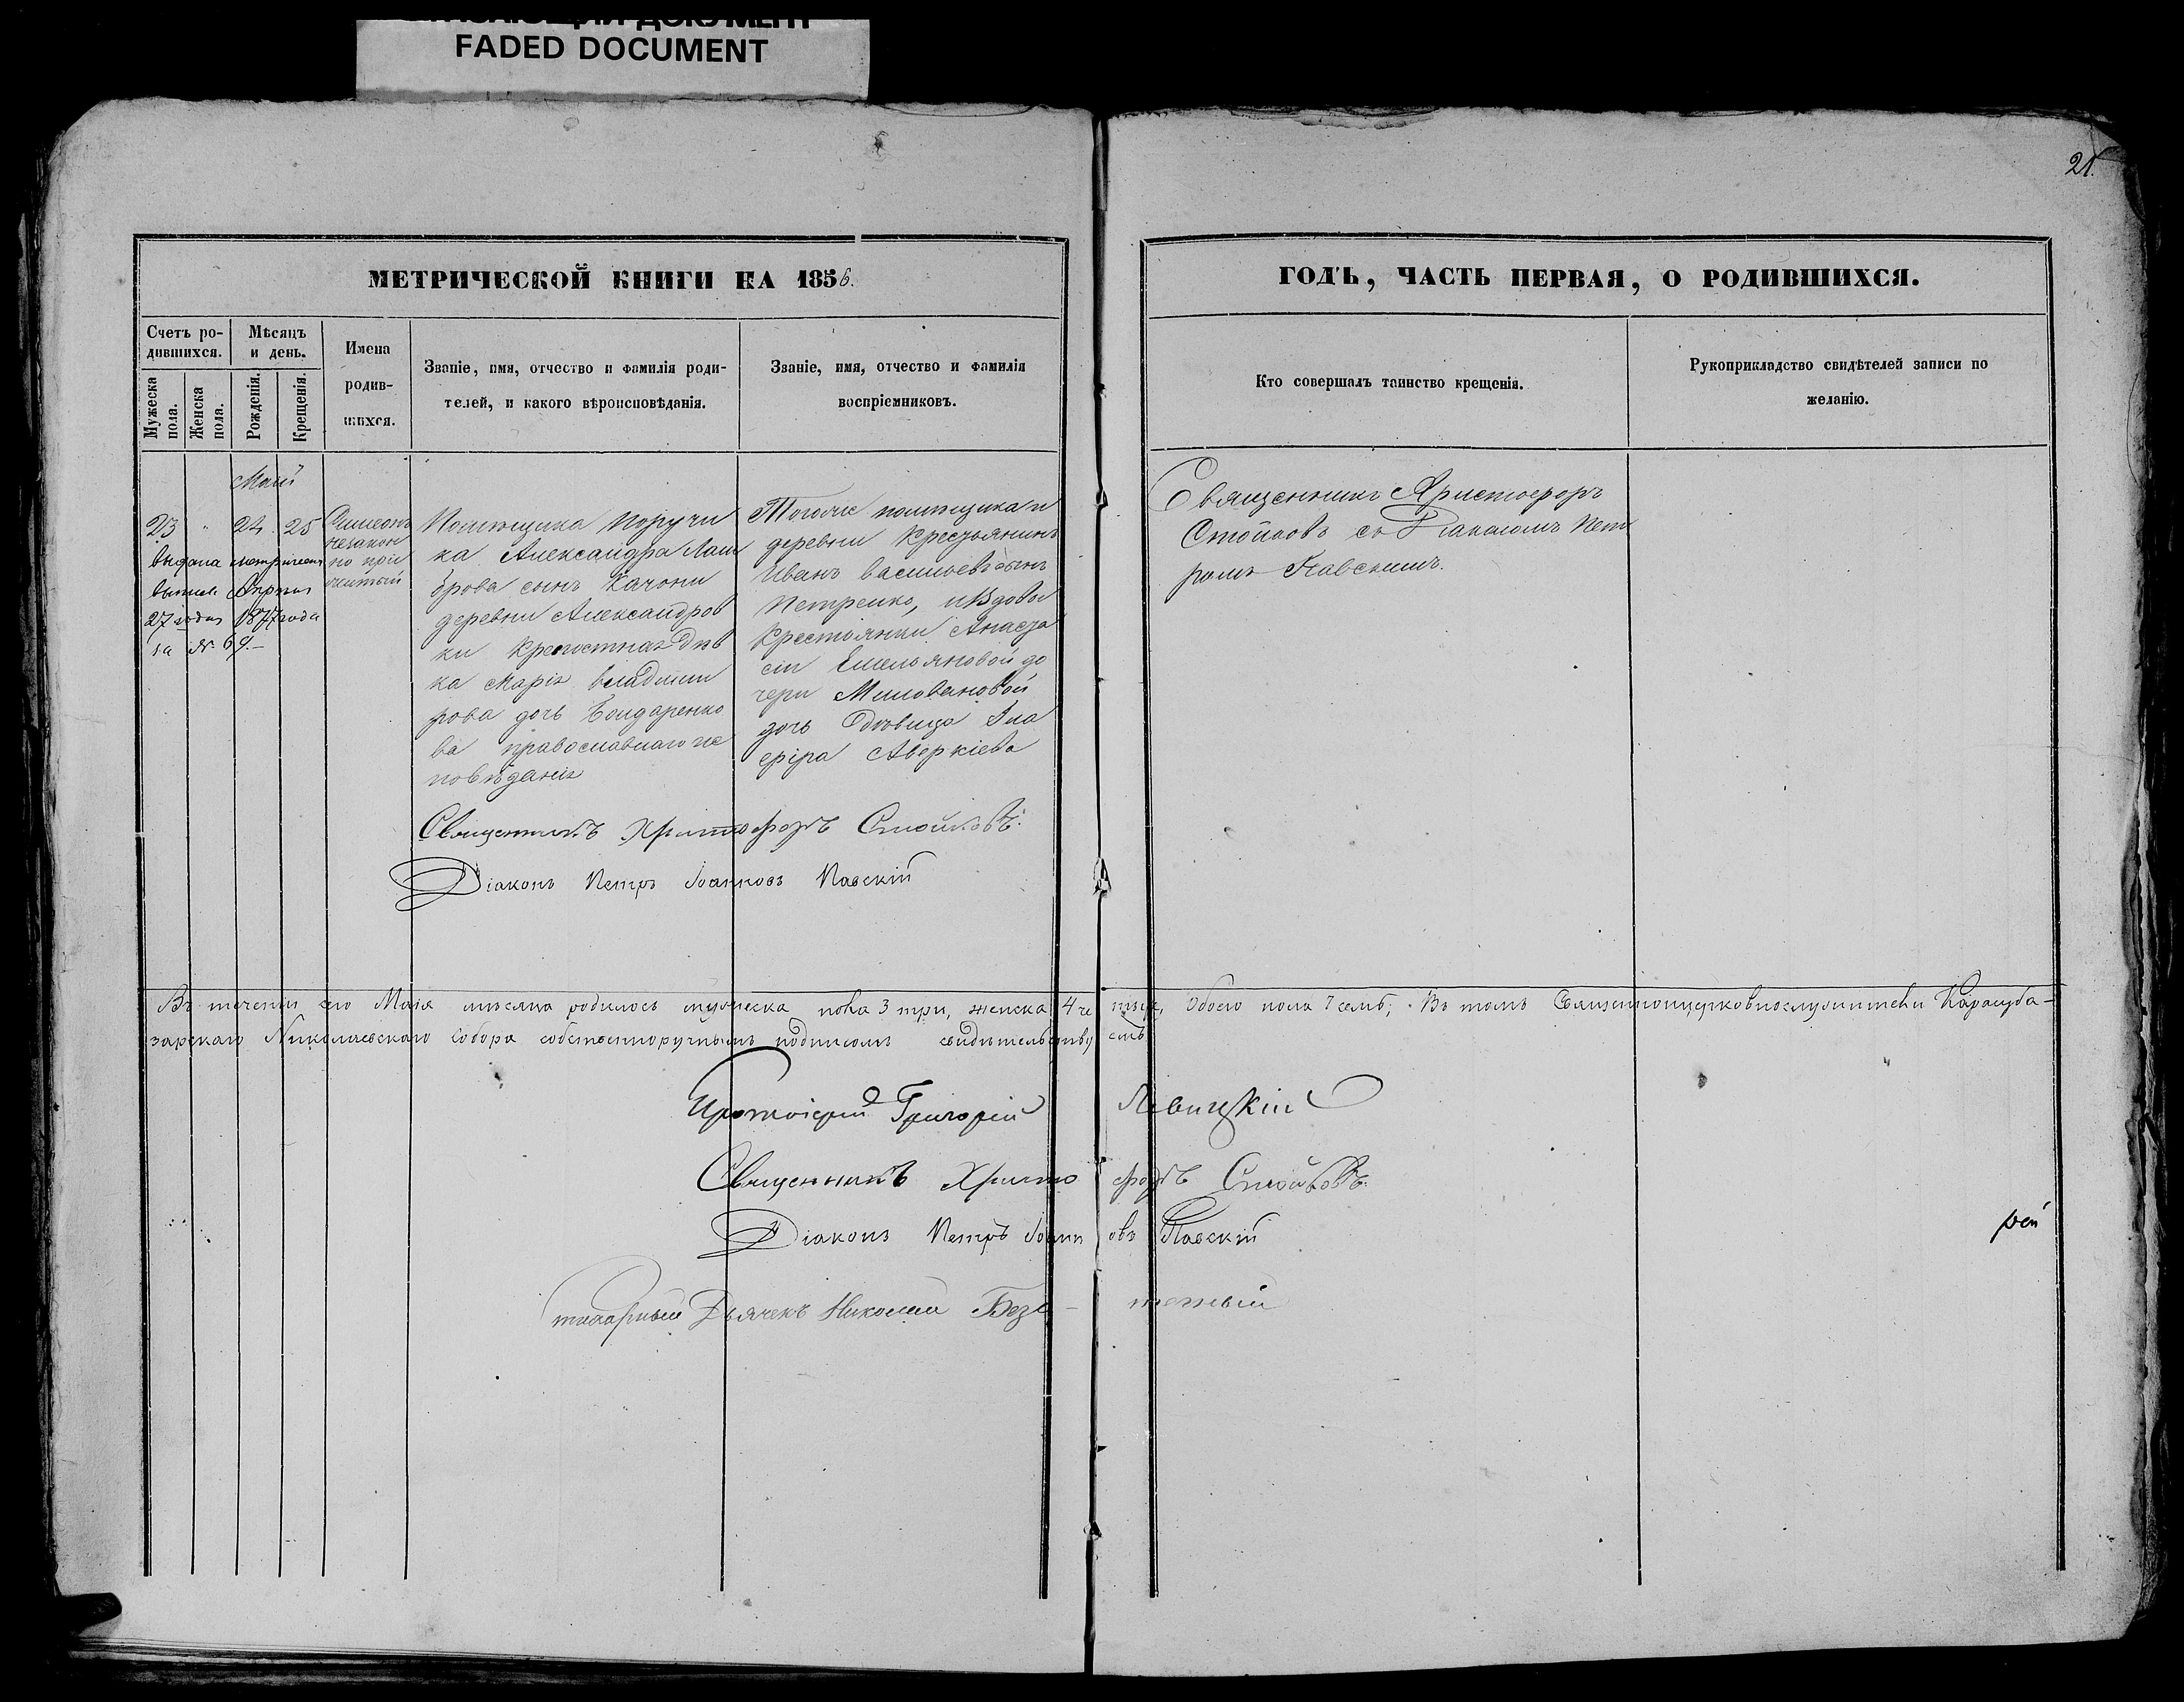 FADED DOCUMENT
21.
МЕТРИЧЕСКОЙ КНИГИ НА 1856.
ГОДЪ, ЧАСТЬ ПЕРВАЯ, О РОДИВШИХСЯ.
Счетъ ро-
дившихся.
Мѣсяцъ
и день.
Мужеска
пола.
Женска
пола.
Рожденія.
Крещенія.
Имена
родив-
шихся.
Званіе, имя, отчество и фамилія роди-
телей, и какого вѣроисповѣданія.
Званіе, имя, отчество и фамилія
воспріемниковъ.
Кто совершалъ таинство крещенія.
Рукоприкладство свидѣтелей записи по
желанію.
Маій
23 " 24 25
Симеонъ
незакон
но при
житый
выдана метрическая
27 1877 года
за № 69.-
Помѣщика Поручи
ка Александра
сынъ Качони
деревни Александров
ки крепостная дѣв
ка Марія Владими
рова дочь Бондаренко
ва православнаго ис
повѣданія
Тогоже помѣщика и
деревни крестьянинъ
Иванъ Васильевъ сынъ
Петренко, и вдовы
крестьянки Анаста
сіи Емельяновой до
чери Миловановой
дочь дѣвица Гла
фіра Аверкіева
Священникъ Христофоръ
Стойковъ съ Діакономъ Пет
ромъ Павскимъ.
Священникъ Христофоръ Стойковъ.
Діаконъ Петръ Іоанновъ Павскій
Въ теченіи сего Маія мѣсяца родилось мужеска пола 3 три, женска 4 че тыре, обоего пола 7 семь; Въ томъ Священноцерковнослужители Карасуба-
зарскаго Николаевскаго Собора собственноручнымъ подписомъ свидѣтельству емъ
Протоіерей Григорій Левицкій
Священникъ Христо форъ Стойковъ.
Діаконъ Петръ Іоанн овъ Павскій
рей
Дьячекъ Николай